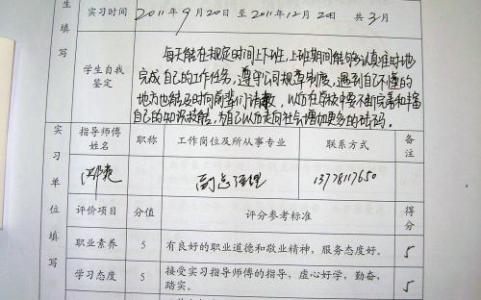 生填写
实习时间 2011年9月20日至2011年12月20日 共3月
学生自我鉴定
每天能在规定时间上下班，上班期间能够认真准时地
完成自己的工作任务，遵守公司规章制度，遇到自己不懂的
地方也能及时向前辈们请教，以后在学校中要不断完善和丰富
自己的知识技能，为自己以后走向社会增加更多的砝码。
实习单位填写
指导师傅姓名 职称 工作岗位及所从事专业 联系方式 备注
副总经理 13778117650
评价项目 分值 评分参考标准 得分
职业素养 5 有良好的职业道德和敬业精神，服务态度好。 5
学习态度 5 接受实习指导师傅的指导，虚心好学，勤奋，
踏实。 5